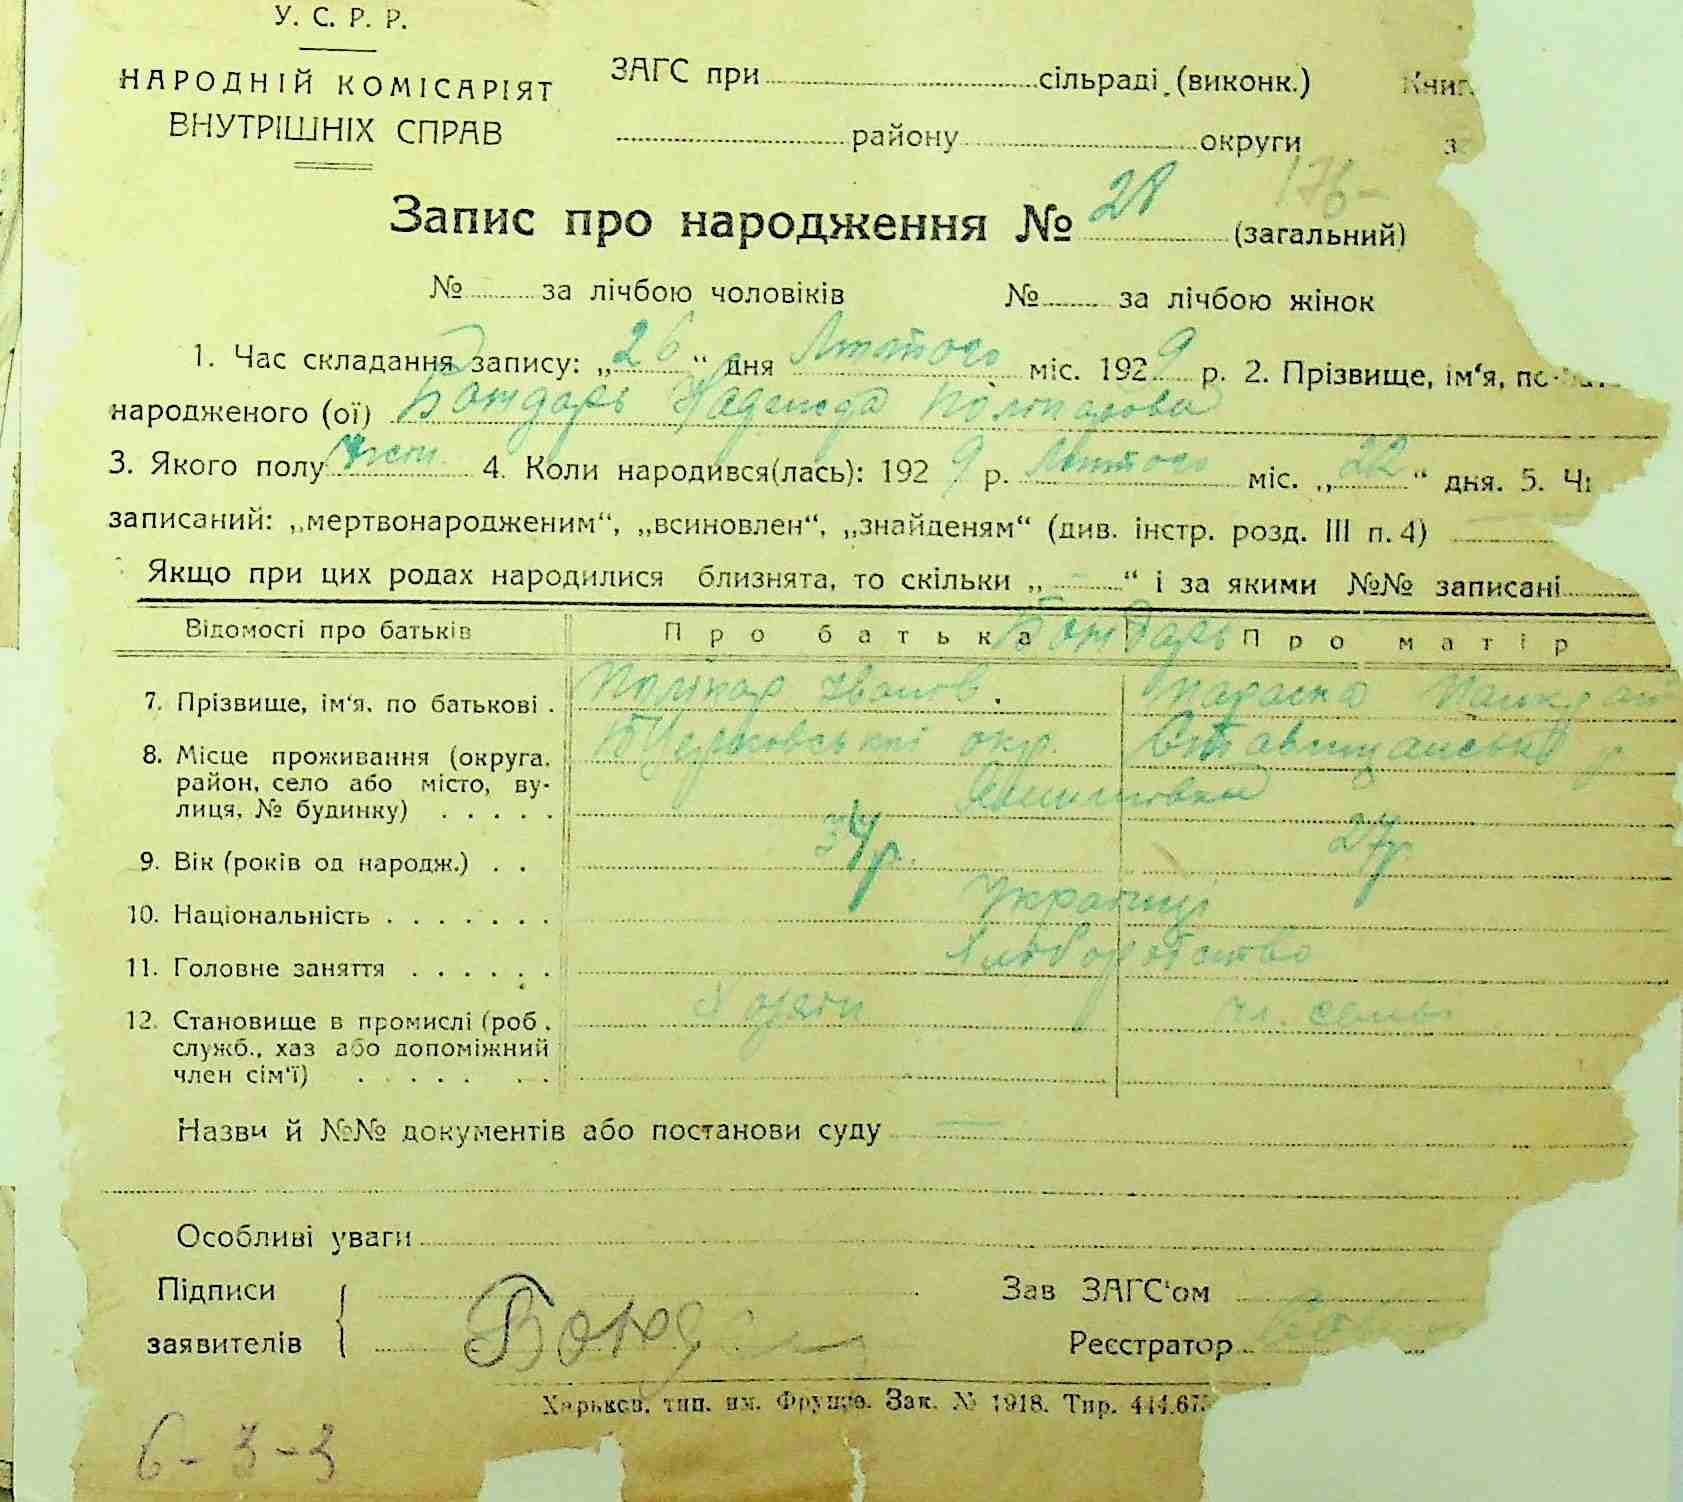 У. С. Р. Р.
НАРОДНІЙ КОМІСАРІЯТ
ВНУТРІШНІХ СПРАВ
ЗАГС при сільраді (виконк.)
району округи
Запис про народження № 28 (загальний)
176-
№ за лічбою чоловіків № за лічбою жінок
1. Час складання запису: „26“ дня Лютого міс. 1929 р. 2. Прізвище, ім‘я, по
народженого (ої) Бондарь Надежда
3. Якого полу жен. 4. Коли народився(лась): 1929 р. Лютого міс. „22“ дня. 5.
записаний: „мертвонародженим“, „всиновлен“, „знайденям“ (див. інстр. розд. III п. 4)
Якщо при цих родах народилися близнята, то скільки „ - “ і за якими №№ записані
Відомості про батьків Про батька Про матір
Бондарь
7. Прізвище, ім‘я, по батькові . Полікар Іванов. Параска
8. Місце проживання (округа, район, село або місто, вулиця, № будинку) . . . . . окр.
9. Вік (років од народж.) . . 34р. 27р
10. Національність . . . . . . . Українці
11. Головне заняття . . . . . . Хліборобство
12. Становище в промислі (роб., служб., хаз або допоміжний член сім‘ї) . . . . . . . Хазяін чл. семьі
Назви й №№ документів або постанови суду —
Особливі уваги
Підписи
заявителів
Бондар
Зав ЗАГС‘ом
Реєстратор
Харьков, тип. им. Фрунзе. Зак. № 1918. Тир. 444.675
6-3-3